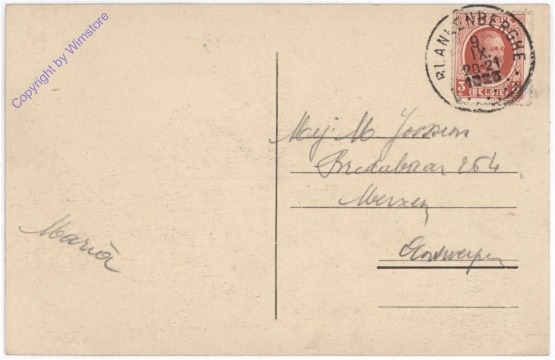 Copyright by Wimstore
BLANKENBERGHE
9
IX.
20-21
BELGIE
Mej. M Joossens
Bredabaan 264
Merxem
Antwerpen
Maria